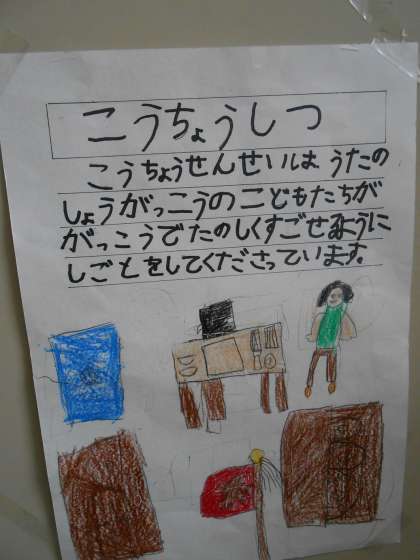 こうちょうしつ
こうちょうせんせいは うたの
しょうがっこうのこどもたちが
がっこうでたのしくすごせるように
しごとをしてくださっています。